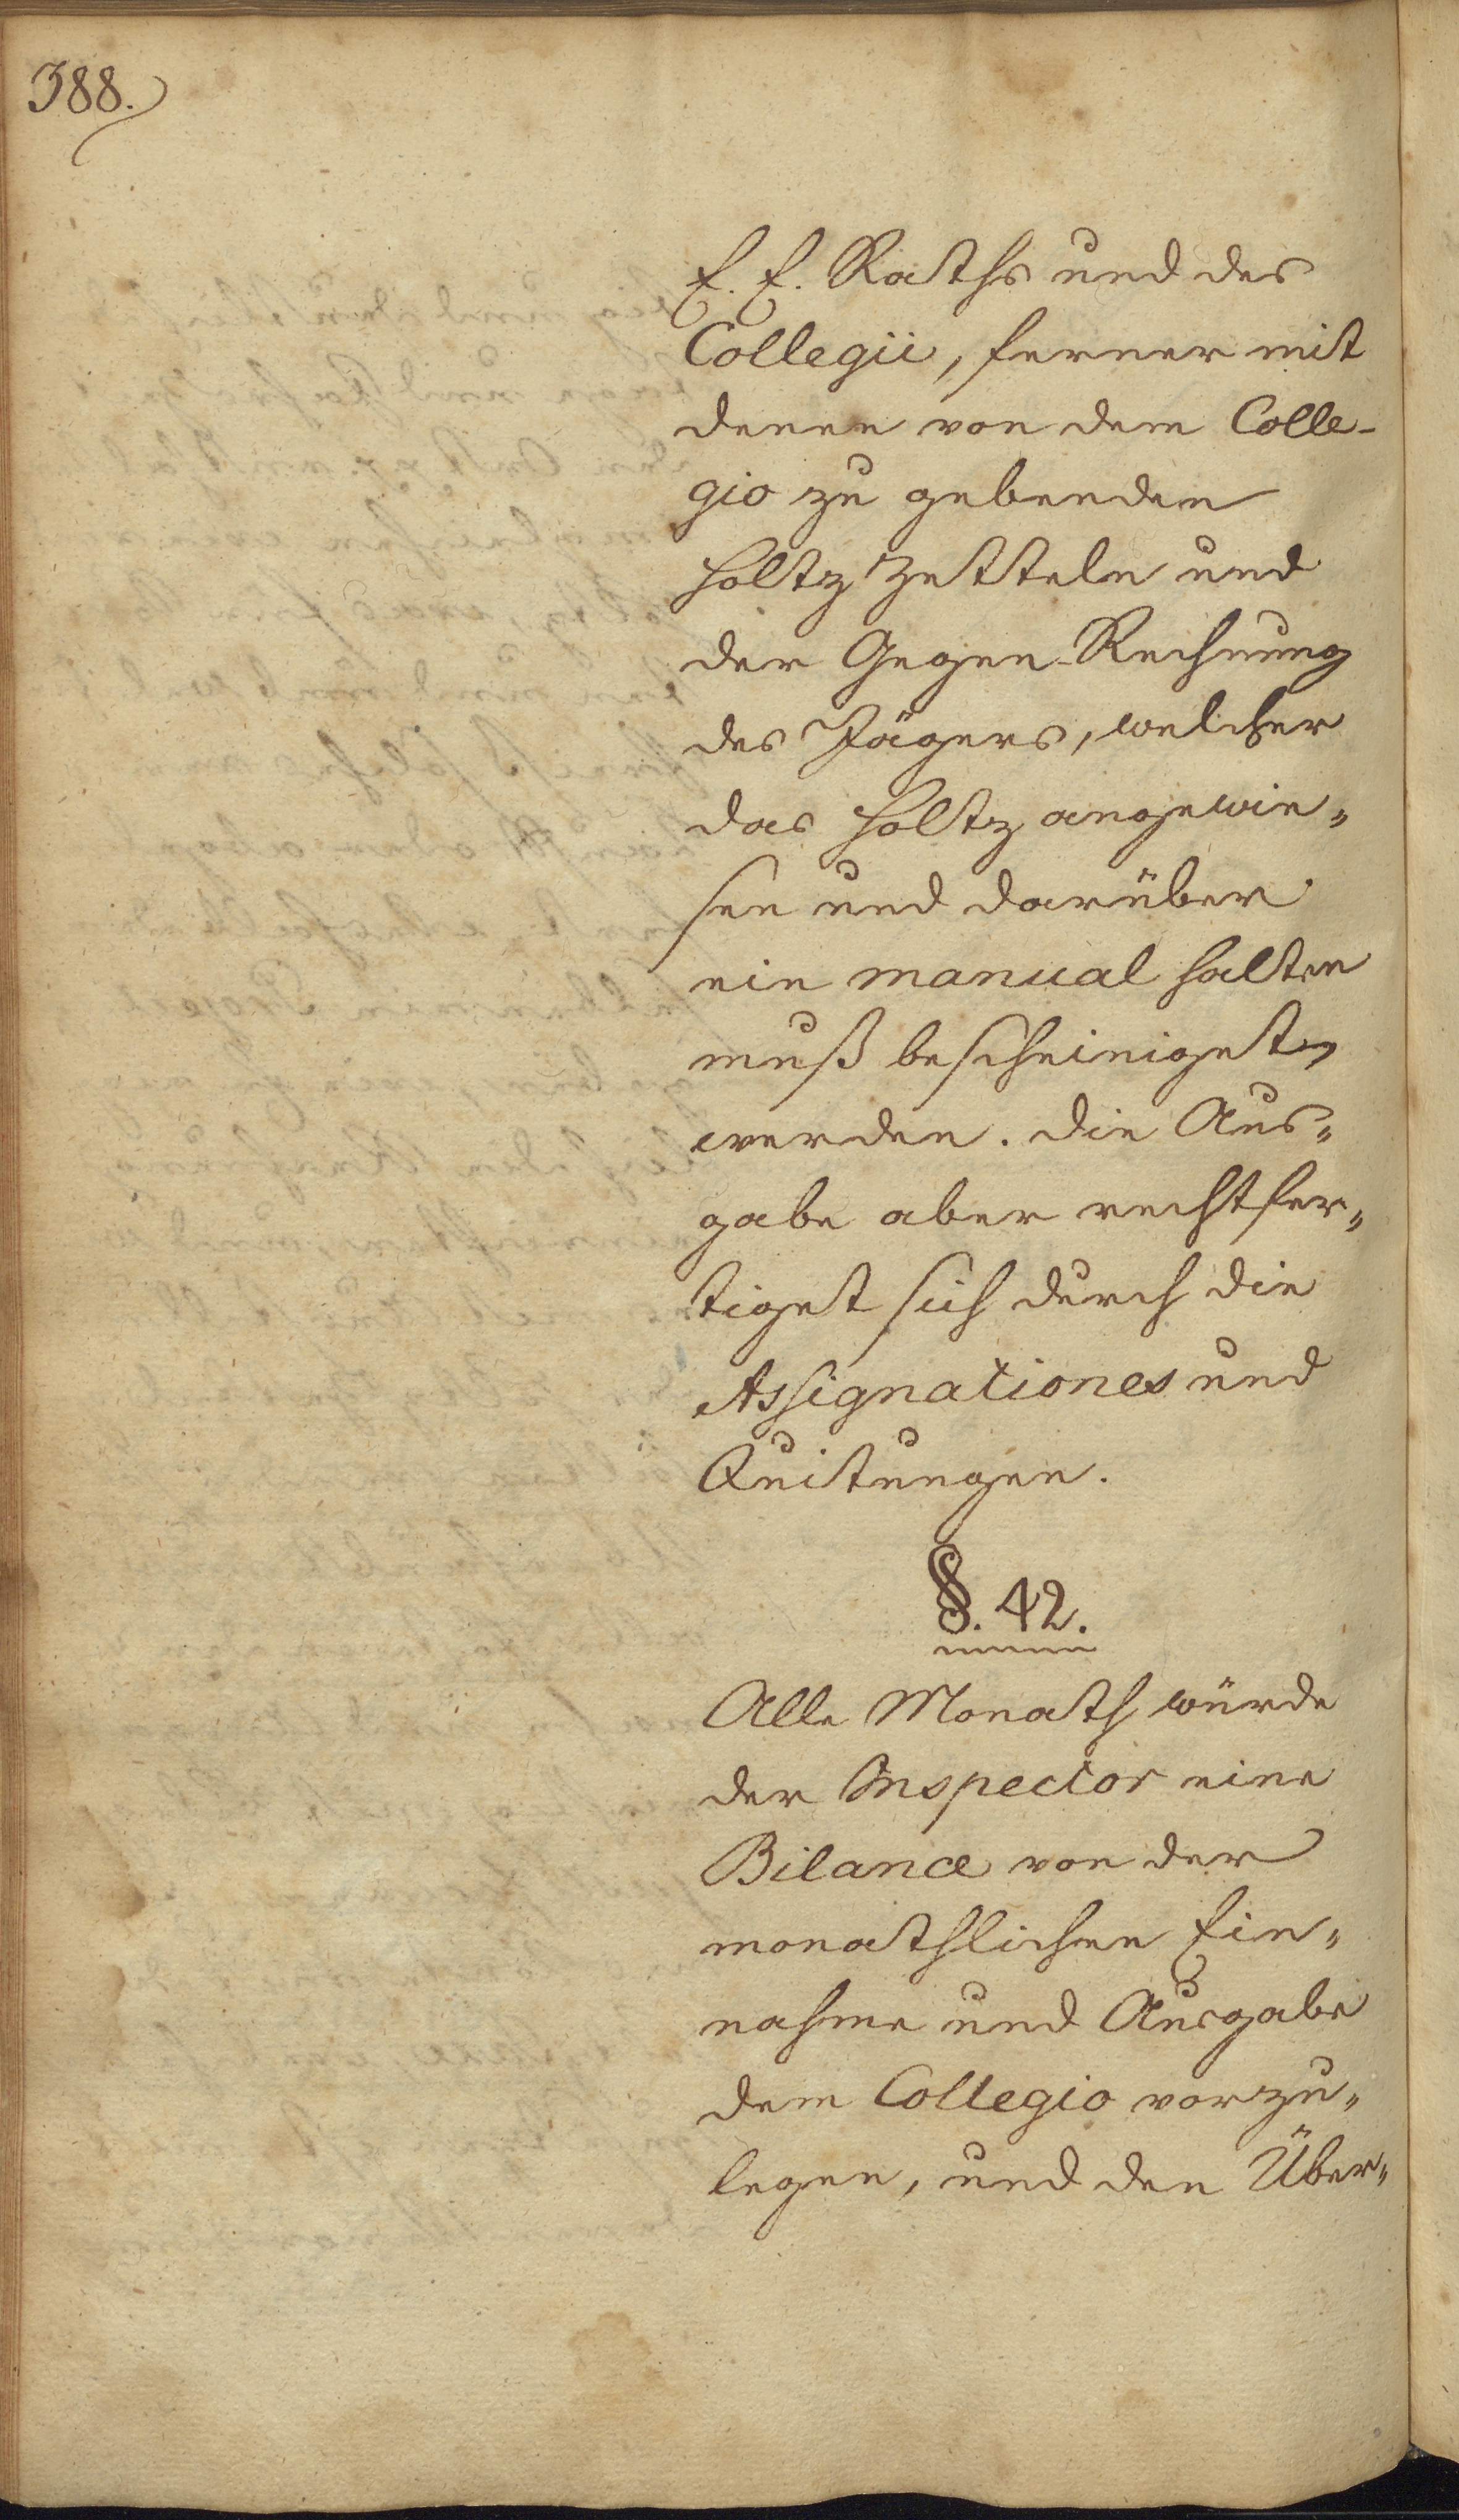 388.
E. E. Raths und des
Collegii, ferner mit
denen von dem Colle-
gio zu gebenden
Holtz Zetteln und
der Gegen-Rechnung
des Jägers, welcher
das Holtz angewie„
sen und darüber
ein manual halten
muß bescheiniget
werden. die Aus„
gabe aber rechtfer„
tiget sich durch die
Assignationes und
Quitungen.
§. 42.
Alle Monath würde
der Inspector eine
Bilance von der
monathlichen Ein„
nahme und Ausgabe
dem Collegio vorzu„
legen, und den Über„